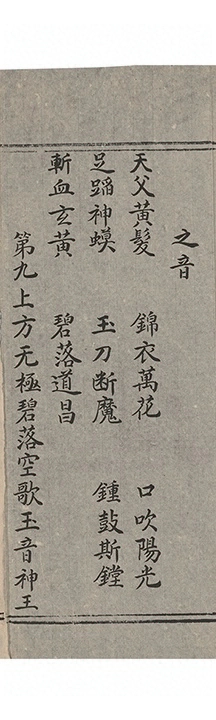 之音
天父黃髮　錦衣萬花　口吹陽光
足蹈神蟆　玉刀断魔　鍾鼓斯鏜
斬血玄黃　碧落道昌
第九上方无極碧落空歌玉音神王